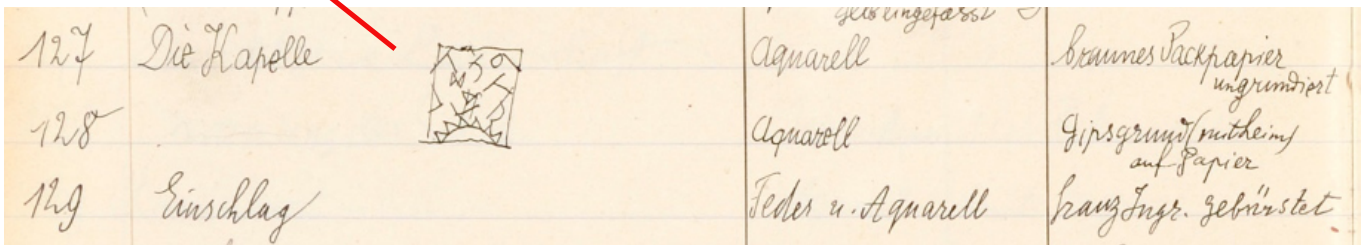 gelb eingefasst
127 Die Kapelle Aquarell braunes Packpapier
ungrundiert
128 Aquarell Gipsgrund (mit Leim)
auf Papier
129 Einschlag Feder u. Aquarell franz Ingr. gebürstet